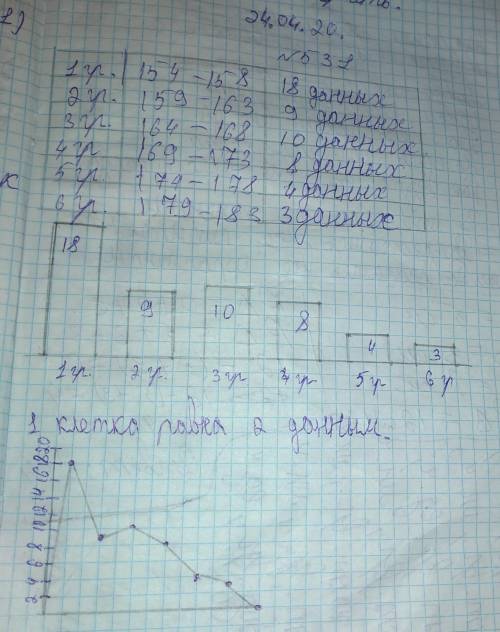 24.04.20.
№531
1 гр. 154 - 158 18 данных
2 гр. 159 - 163 9 данных
3 гр. 164 - 168 10 данных
4 гр 169 - 173 8 данных
5 гр. 174 - 178 4 данных
6 гр. 179 - 183 3 данных
18 9 10 8 4 3
1 гр. 2 гр. 3 гр 4 гр 5 гр 6 гр
1 клетка равна 2 данным.
20
18
16
14
12
10
8
6
4
2